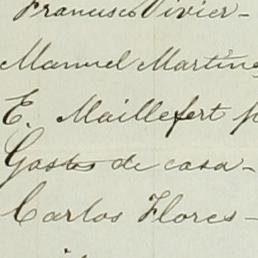 Francisco Vivier-
Manuel Martine
E. Maillefert p
Gastos de casa-
Carlos Flores-